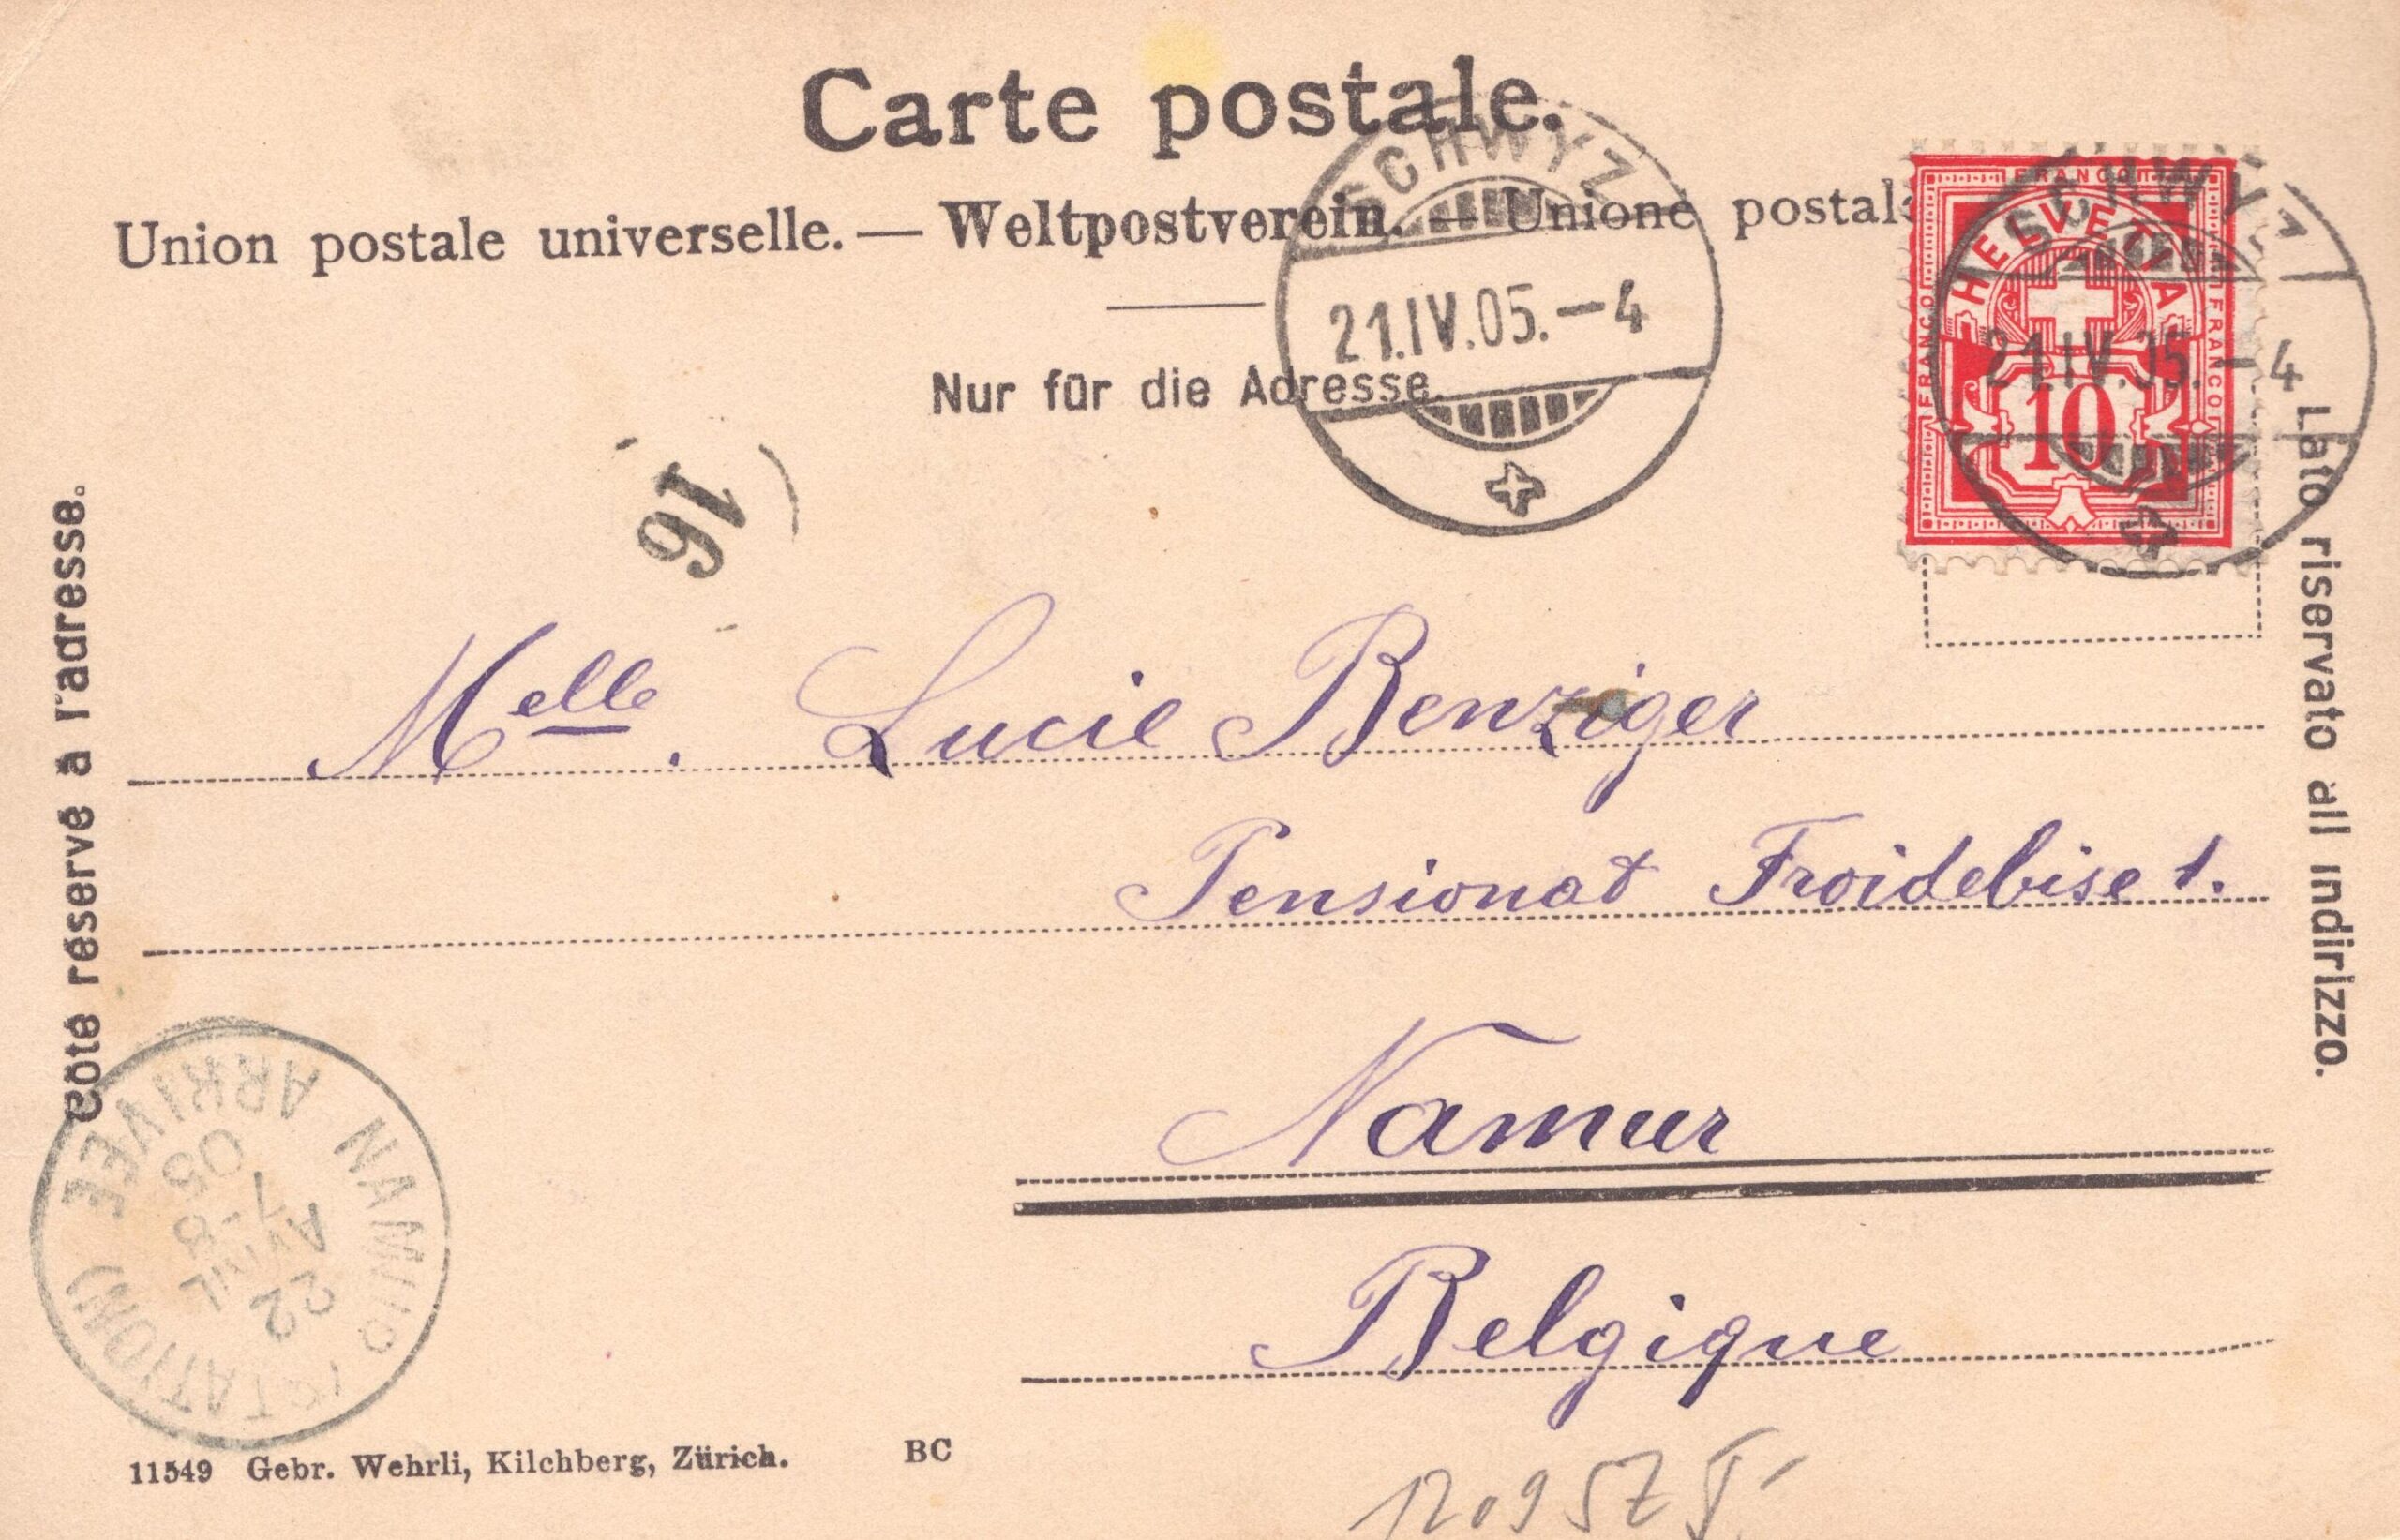 Carte postale.
Union postale universelle. — Weltpostverein. — Unione postale
Nur für die Adresse.
Côté réservé à l'adresse.
Lato riservato all indirizzo.
SCHWYZ
21.IV.05.-4
FRANCO
HELVETIA
FRANCO
FRANCO
10
SCHWYZ
21.IV.05.-4
16
Melle. Lucie Benziger
Pensionat Froidebise 1.
Namur
Belgique
NAMUR (STATION)
ARRIVÉE
22
AVRIL
7-8
05
11549 Gebr. Wehrli, Kilchberg, Zürich. BC